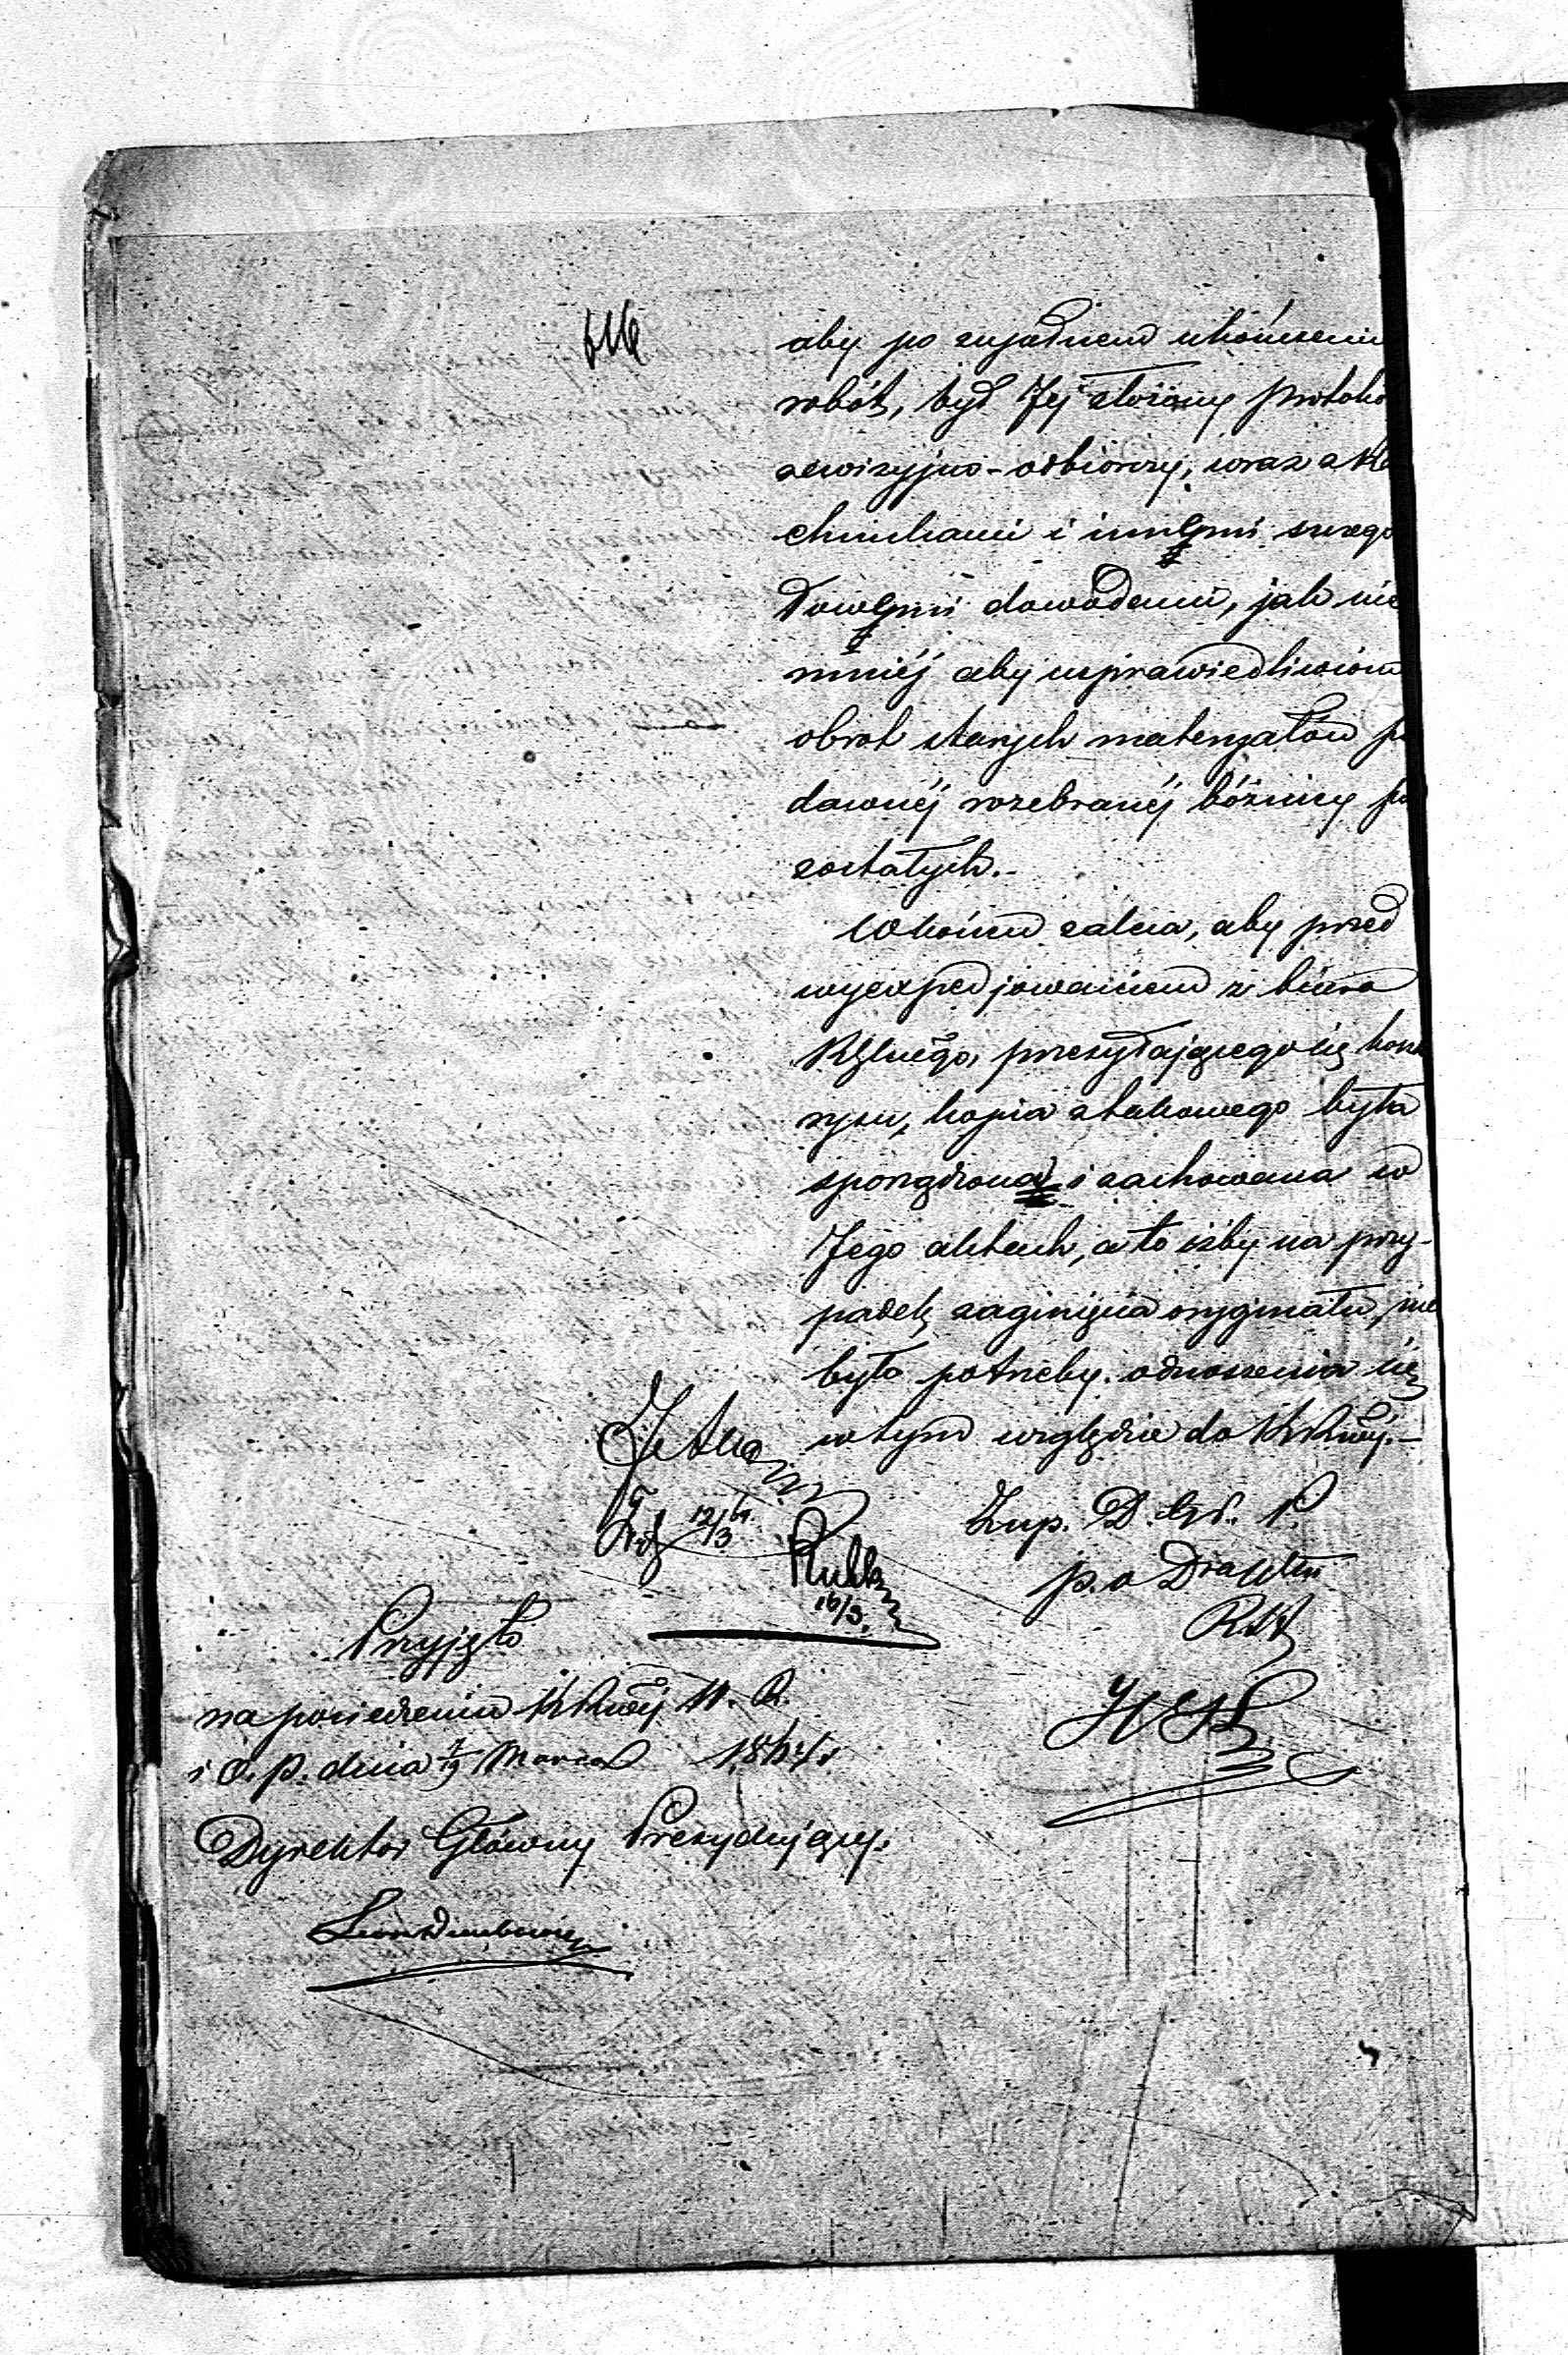 aby po zupełnem ukończeniu
robót, był Jej złożony protoko
rewizyjno-odbiorczy, wraz z Ra
chunkami i innymi szczegó
łowymi dowodami, jak nie
mniéj aby usprawiedliwiono
obrot starych materyałów po
dawnéj rozebranéj bóżnicy po
zostałych.-
W końcu zaleca, aby przed
wyexpedjowaniem z biura
Rządu Głnego, przesyłającego się kosz
rysu, kopia z takowego była
sporządzona i zachowana w
Jego aktach, a to iżby na przy-
padek zaginięcia oryginału, nie
było potrzeby odnoszenia się
w tym względzie do KRządwéj.-
12/3
16/3.
Zup. D. Gł. P.
p. o Dra Włu
Przyjęto
na posiedzeniu KRządwéj S. W.
i D. p. dnia Marca 1864 r.
Dyrektor Główny Prezydujący.